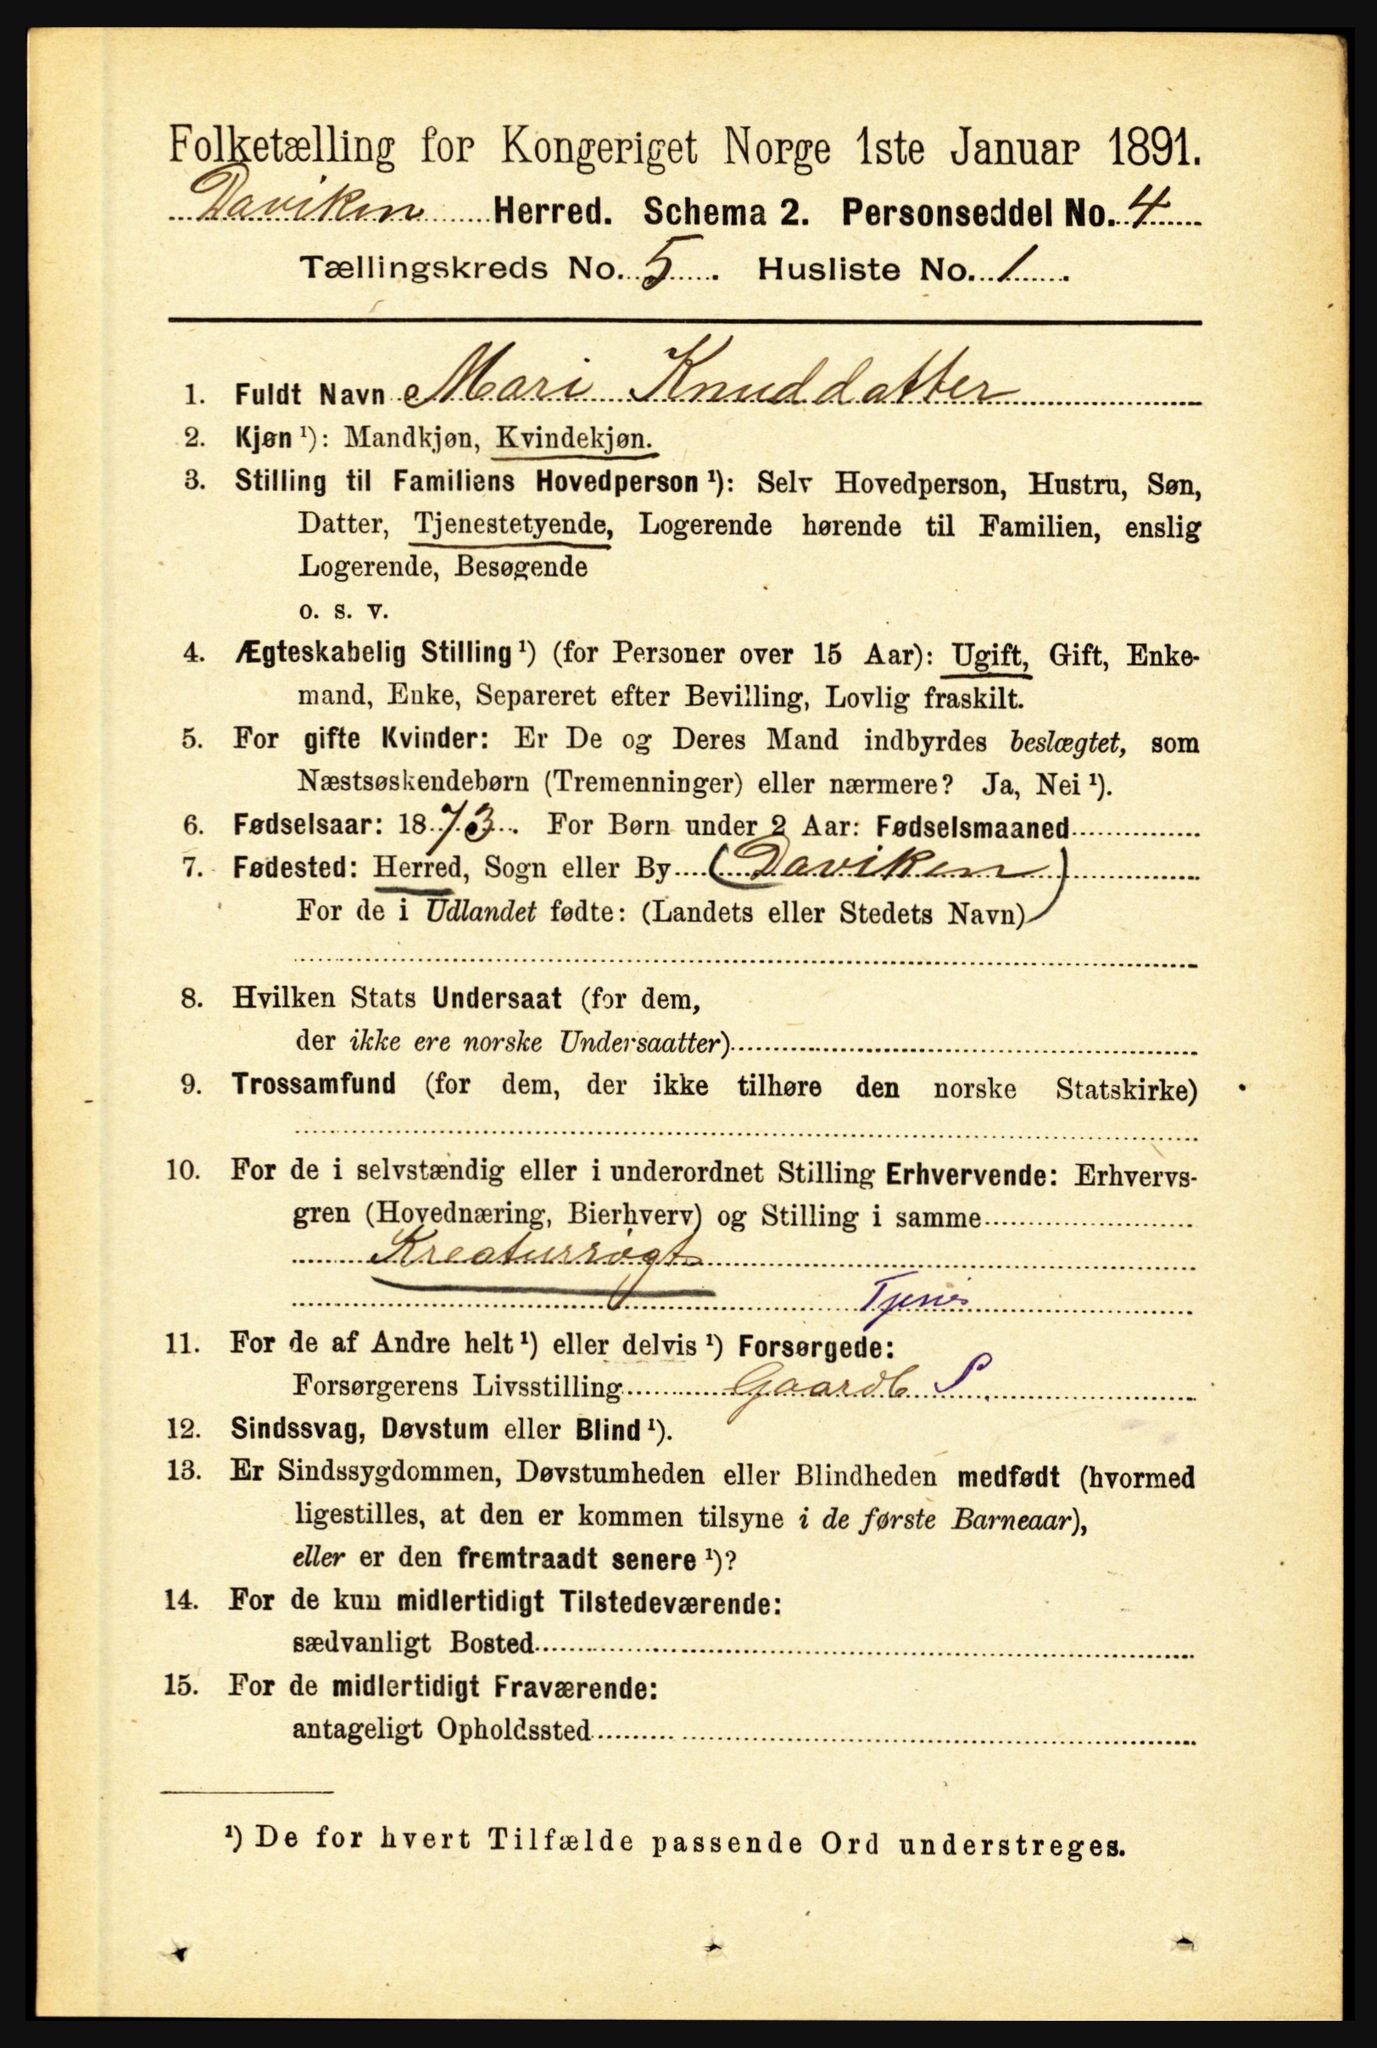 Folketælling for Kongeriget Norge 1ste Januar 1891.
Daviken Herred. Schema 2. Personseddel No. 4
Tællingskreds No. 5. Husliste No. 1.
1. Fuldt Navn Mari Knuddatter
2. Kjøn ¹): Mandkjøn, Kvindekjøn.
3. Stilling til Familiens Hovedperson ¹): Selv Hovedperson, Hustru, Søn,
Datter, Tjenestetyende, Logerende hørende til Familien, enslig
Logerende, Besøgende
o. s. v.
4. Ægteskabelig Stilling ¹) (for Personer over 15 Aar): Ugift, Gift, Enke-
mand, Enke, Separeret efter Bevilling, Lovlig fraskilt.
5. For gifte Kvinder: Er De og Deres Mand indbyrdes beslægtet, som
Næstsøskendebørn (Tremenninger) eller nærmere? Ja, Nei ¹).
6. Fødselsaar: 1873. For Børn under 2 Aar: Fødselsmaaned
7. Fødested: Herred, Sogn eller By (Daviken)
For de i Udlandet fødte: (Landets eller Stedets Navn)
8. Hvilken Stats Undersaat (for dem,
der ikke ere norske Undersaatter)
9. Trossamfund (for dem, der ikke tilhøre den norske Statskirke)
10. For de i selvstændig eller i underordnet Stilling Erhvervende: Erhvervs-
gren (Hovednæring, Bierhverv) og Stilling i samme
Kreaturrøgt
Tjenes
11. For de af Andre helt ¹) eller delvis ¹) Forsørgede:
Forsørgerens Livsstilling Gaardb S.
12. Sindssvag, Døvstum eller Blind ¹).
13. Er Sindssygdommen, Døvstumheden eller Blindheden medfødt (hvormed
ligestilles, at den er kommen tilsyne i de første Barneaar),
eller er den fremtraadt senere ¹)?
14. For de kun midlertidigt Tilstedeværende:
sædvanligt Bosted
15. For de midlertidigt Fraværende:
antageligt Opholdssted
¹) De for hvert Tilfælde passende Ord understreges.